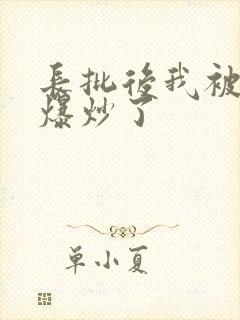 長批後我被
爆炒了
单小夏